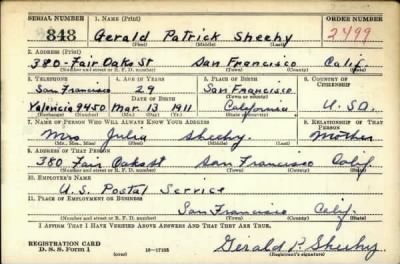 SERIAL NUMBER 1. NAME (Print) ORDER NUMBER
343 Gerald Patrick Sheehy 2499
(First) (Middle) (Last)
2. ADDRESS (Print)
380-Fair Oaks St San Francisco Calif.
(Number and street or R. F. D. number) (Town) (County) (State)
3. TELEPHONE 4. AGE IN YEARS 5. PLACE OF BIRTH 6. COUNTRY OF CITIZENSHIP
San Francisco 29 San Francisco
DATE OF BIRTH (Town or county)
Valencia 9450 Mar. 13 1911 California U.S.A.
(Exchange) (Number) (Mo.) (Day) (Yr.) (State or country)
7. NAME OF PERSON WHO WILL ALWAYS KNOW YOUR ADDRESS 8. RELATIONSHIP OF THAT PERSON
Mrs. Julia Sheehy. Mother
(Mr., Mrs., Miss) (First) (Middle) (Last)
9. ADDRESS OF THAT PERSON
380 Fair Oaks St San Francisco Calif
(Number and street or R. F. D. number) (Town) (County) (State)
10. EMPLOYER'S NAME
U.S. Postal Service
11. PLACE OF EMPLOYMENT OR BUSINESS
San Francisco Calif.
(Number and street or R. F. D. number) (Town) (County) (State)
I AFFIRM THAT I HAVE VERIFIED ABOVE ANSWERS AND THAT THEY ARE TRUE.
REGISTRATION CARD
D. S. S. Form 1 (over) 16—17105 Gerald P. Sheehy
(Registrant's signature)